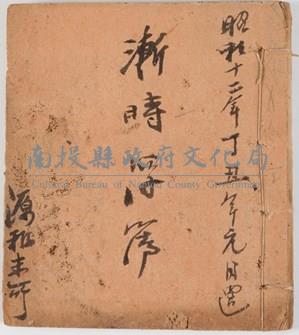 昭和十二年丁丑年元月
漸時浮簿
源和
南投縣政府文化局
Cultural Bureau of Nantou County Government